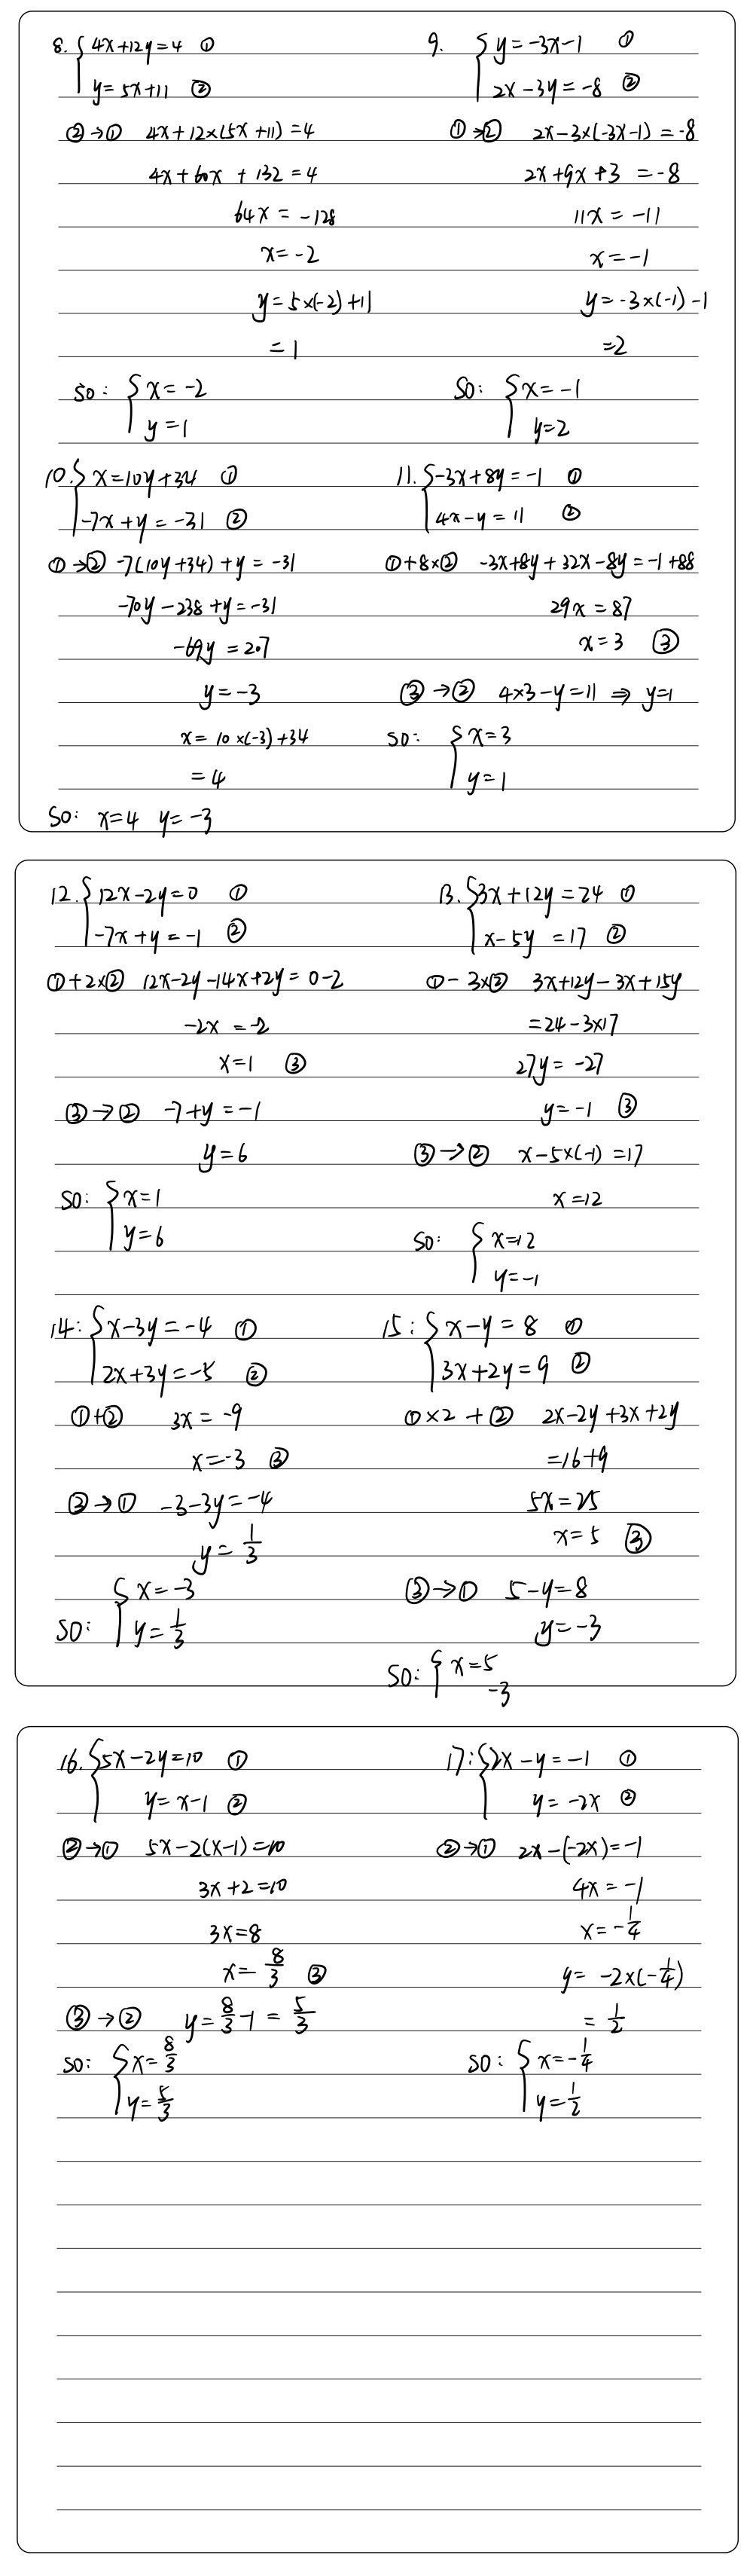 8. { 4x+12y=4 ①
y=5x+11 ②
②→① 4x+12×(5x+11)=4
4x+60x+132=4
64x=-128
x=-2
y=5×(-2)+11
=1
so: { x=-2
y=1
9. { y=-3x-1 ①
2x-3y=-8 ②
①→② 2x-3×(-3x-1)=-8
2x+9x+3=-8
11x=-11
x=-1
y=-3×(-1)-1
=2
SO: { x=-1
y=2
10. { x=10y+34 ①
-7x+y=-31 ②
①→② -7(10y+34)+y=-31
-70y-238+y=-31
-69y=207
y=-3
x=10×(-3)+34
=4
SO: x=4 y=-3
11. { -3x+8y=-1 ①
4x-y=11 ②
①+8×② -3x+8y+32x-8y=-1+88
29x=87
x=3 ③
③→② 4×3-y=11 ⇒ y=1
SO: { x=3
y=1
12. { 12x-2y=0 ①
-7x+y=-1 ②
①+2×② 12x-2y-14x+2y=0-2
-2x=-2
x=1 ③
③→② -7+y=-1
y=6
SO: { x=1
y=6
13. { 3x+12y=24 ①
x-5y=17 ②
①-3×② 3x+12y-3x+15y
=24-3×17
27y=-27
y=-1 ③
③→② x-5×(-1)=17
x=12
SO: { x=12
y=-1
14: { x-3y=-4 ①
2x+3y=-5 ②
①+② 3x=-9
x=-3 ③
③→① -3-3y=-4
y=1/3
SO: { x=-3
y=1/3
15: { x-y=8 ①
3x+2y=9 ②
①×2+② 2x-2y+3x+2y
=16+9
5x=25
x=5 ③
③→① 5-y=8
y=-3
SO: { x=5
-3
16. { 5x-2y=10 ①
y=x-1 ②
②→① 5x-2(x-1)=10
3x+2=10
3x=8
x=8/3 ③
③→② y=8/3-1=5/3
SO: { x=8/3
y=5/3
17: { 2x-y=-1 ①
y=-2x ②
②→① 2x-(-2x)=-1
4x=-1
x=-1/4
y=-2×(-1/4)
=1/2
SO: { x=-1/4
y=1/2